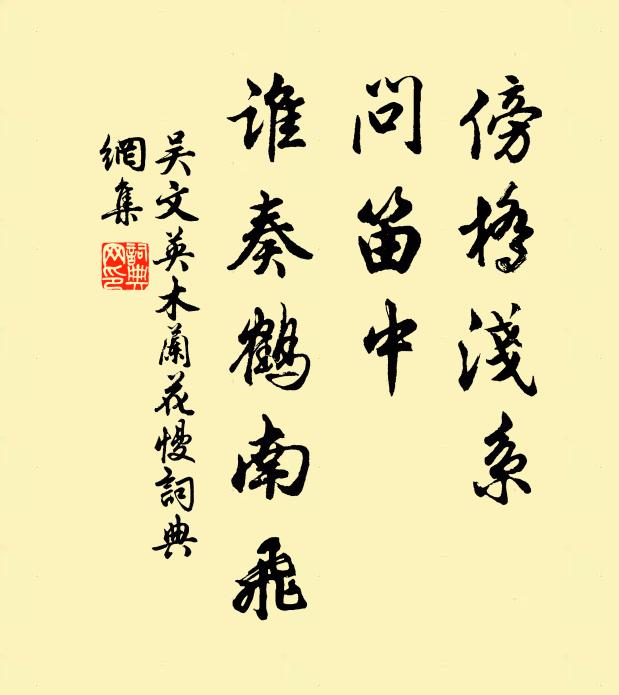 傍橋淺系
問笛中
誰奏鶴南飛
吴文英木蘭花慢詞典
網集
詞典網印